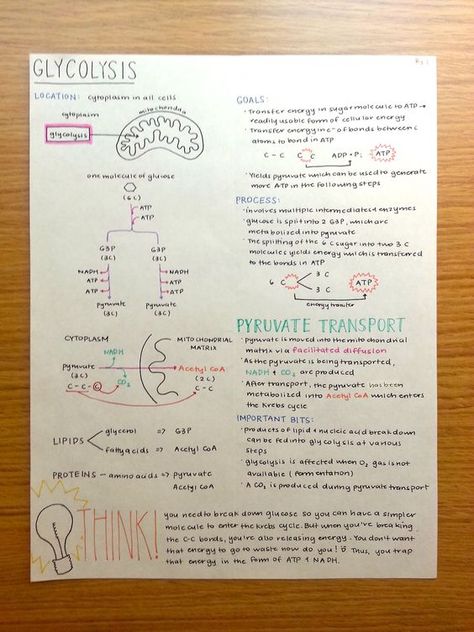 Pg 1
GLYCOLYSIS
LOCATION: cytoplasm in all cells
mitochondria
cytoplasm
glycolysis
one molecule of glucose
(6C)
ATP
ATP
G3P G3P
(3C) (3C)
NADH NADH
ATP ATP
ATP ATP
pyruvate pyruvate
(3C) (3C)
CYTOPLASM MITOCHONDRIAL
MATRIX
NADH
pyruvate Acetyl CoA
(3C) (2C)
CO2
C-C-C C-C
LIPIDS glycerol => G3P
fatty acids => Acetyl CoA
PROTEINS - amino acids => pyruvate
Acetyl CoA
GOALS:
· Transfer energy in sugar molecule to ATP →
readily usable form of cellular energy
· Transfer energy in e- of bonds between C
atoms to bond in ATP
C-C C C ADP + Pi ATP
· Yields pyruvate which can be used to generate
more ATP in the following steps
PROCESS:
· involves multiple intermediates + enzymes
· glucose is split into 2 G3P, which are
metabolized into pyruvate
· The splitting of the 6 C sugar into two 3 C
molecules yields energy which is transferred
to the bonds in ATP
3 C
6 C ATP
3 C
energy transfer
PYRUVATE TRANSPORT
· Pyruvate is moved into the mitochondrial
matrix via facilitated diffusion
· As the pyruvate is being transported,
NADH + CO2 are produced
· After transport, the pyruvate has been
metabolized into Acetyl CoA which enters
the Krebs cycle
IMPORTANT BITS:
· products of lipid + nucleic acid breakdown
can be fed into glycolysis at various
steps
· glycolysis is affected when O2 gas is not
available (fermentation)
· A CO2 is produced during pyruvate transport
THINK!
you need to break down glucose so you can have a simpler
molecule to enter the krebs cycle. But when you're breaking
the C-C bonds, you're also releasing energy. You don't want
that energy to go to waste now do you! Thus, you trap
that energy in the form of ATP + NADH.